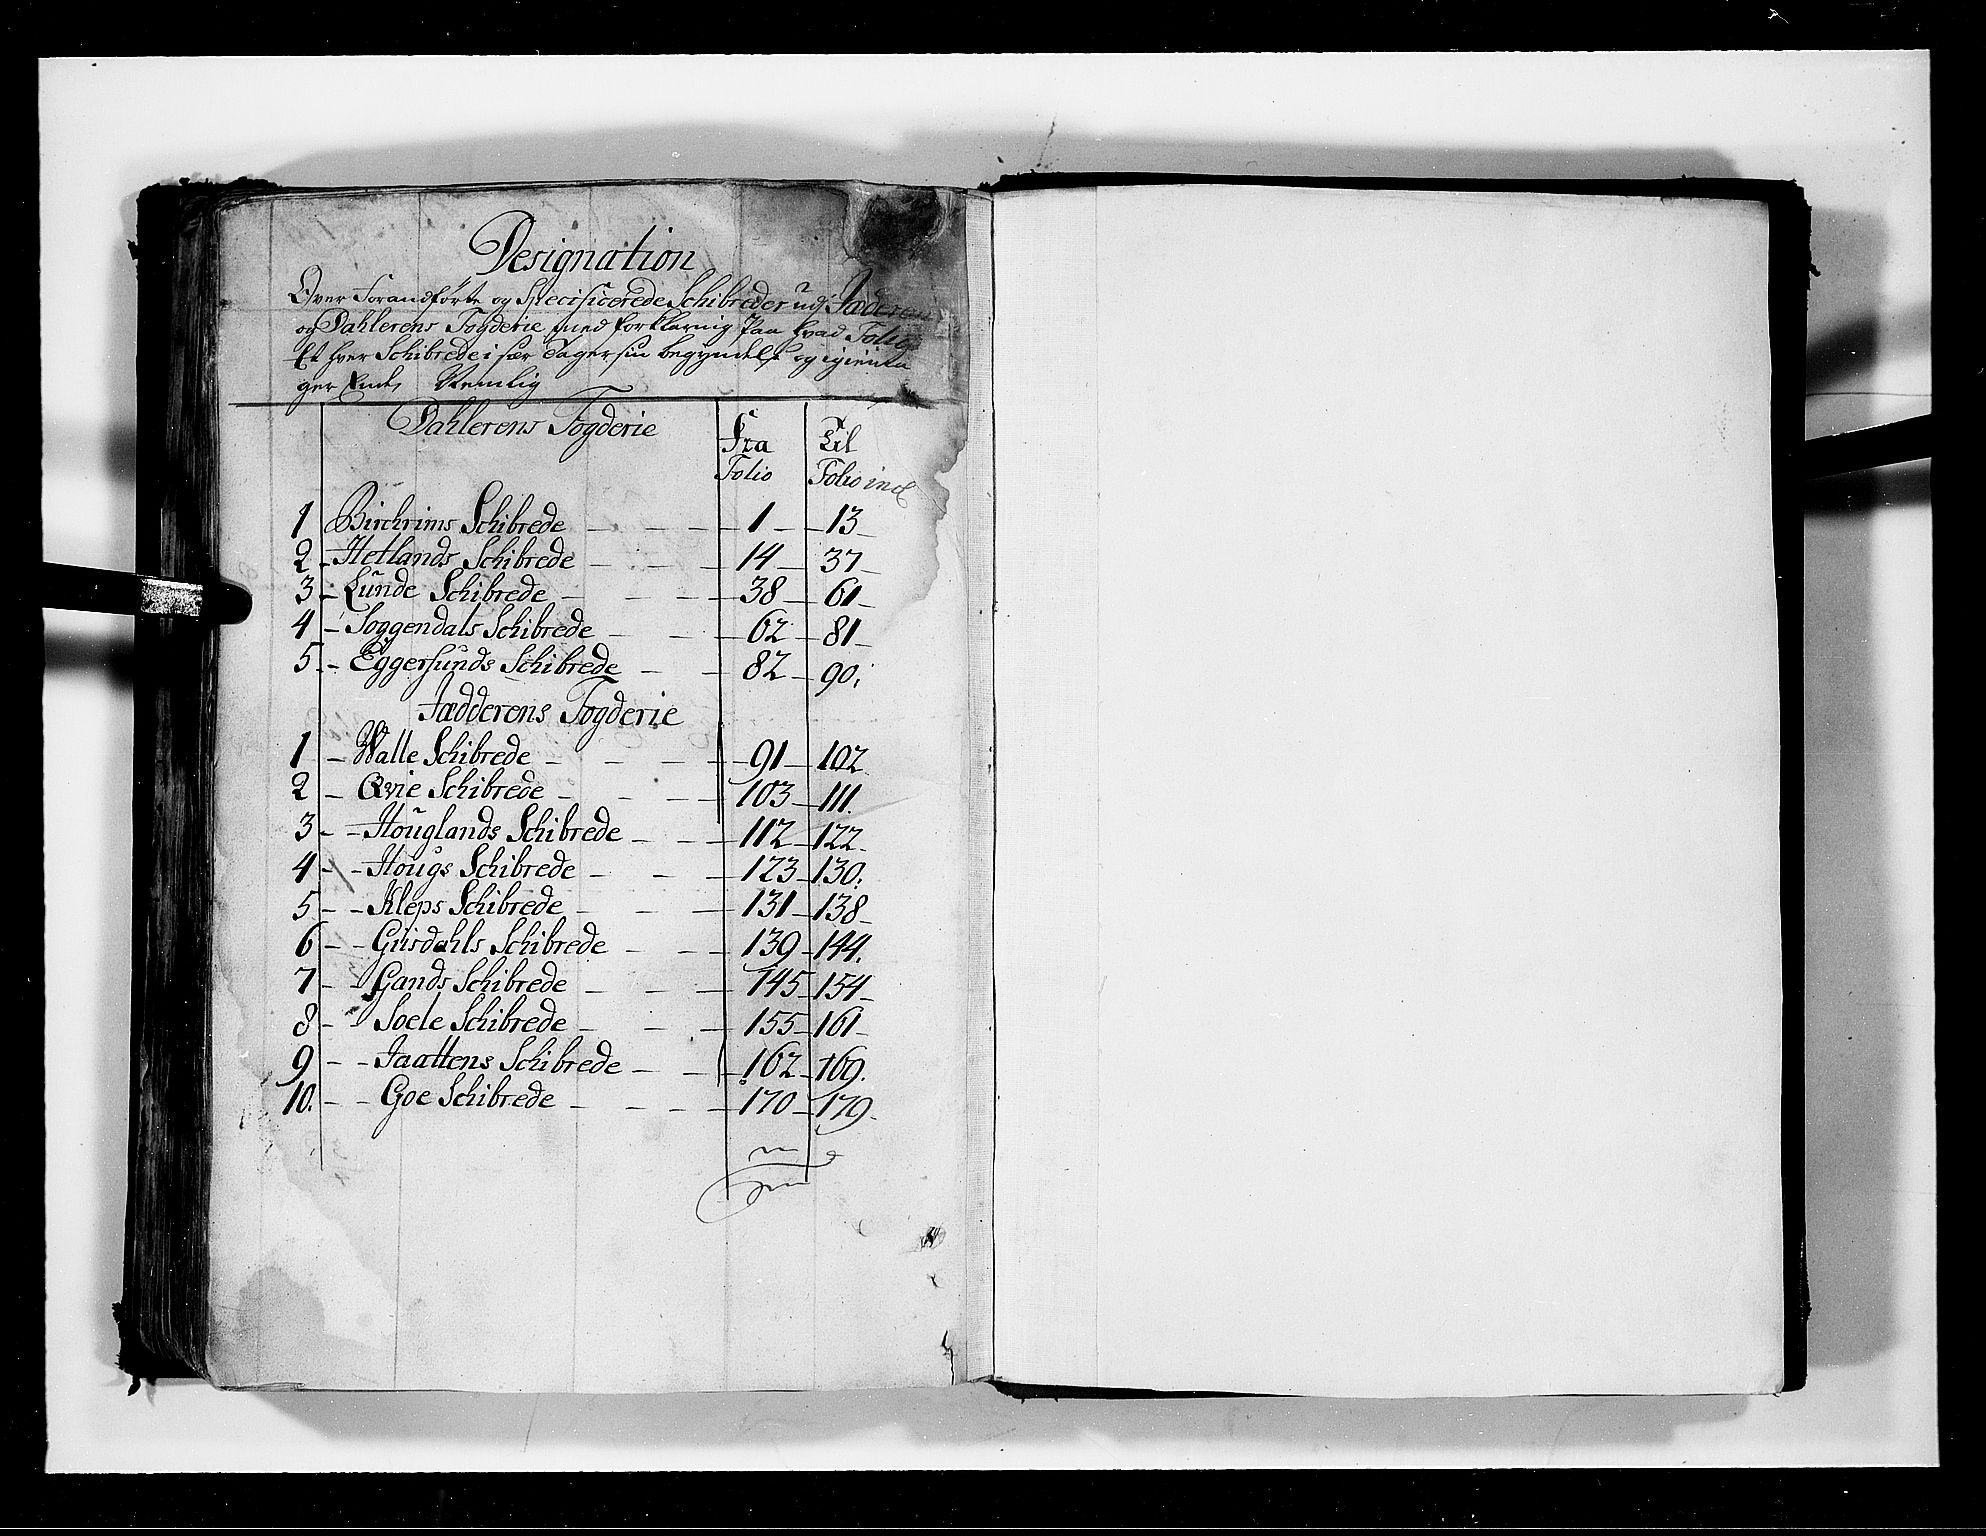 Designation
Over Foranførte og Specificerede Schibreder udj Jæderen
og Dahlerens Fogderie med forklaring Paa hvad Folio
Et hver Schibrede i sær Tager sin begyndelse og igien
ger Ende, Nemlig
Dahlerens Fogderie Fra Til
Folio Folio incl
1 Birchrims Schibrede 1 13
2 Hetlands Schibrede 14 37
3 Lunde Schibrede 38 61
4 Soggendals Schibrede 62 81
5 Eggersunds Schibrede 82 90
Jædderens Fogderie
1 Walle Schibrede 91 102
2 Qvie Schibrede 103 111
3 Houglands Schibrede 112 122
4 Hougs Schibrede 123 130
5 Kleps Schibrede 131 138
6 Giisdahls Schibrede 139 144
7 Gands Schibrede 145 154
8 Soele Schibrede 155 161
9 Jaattens Schibrede 162 169
10. Goe Schibrede 170 179